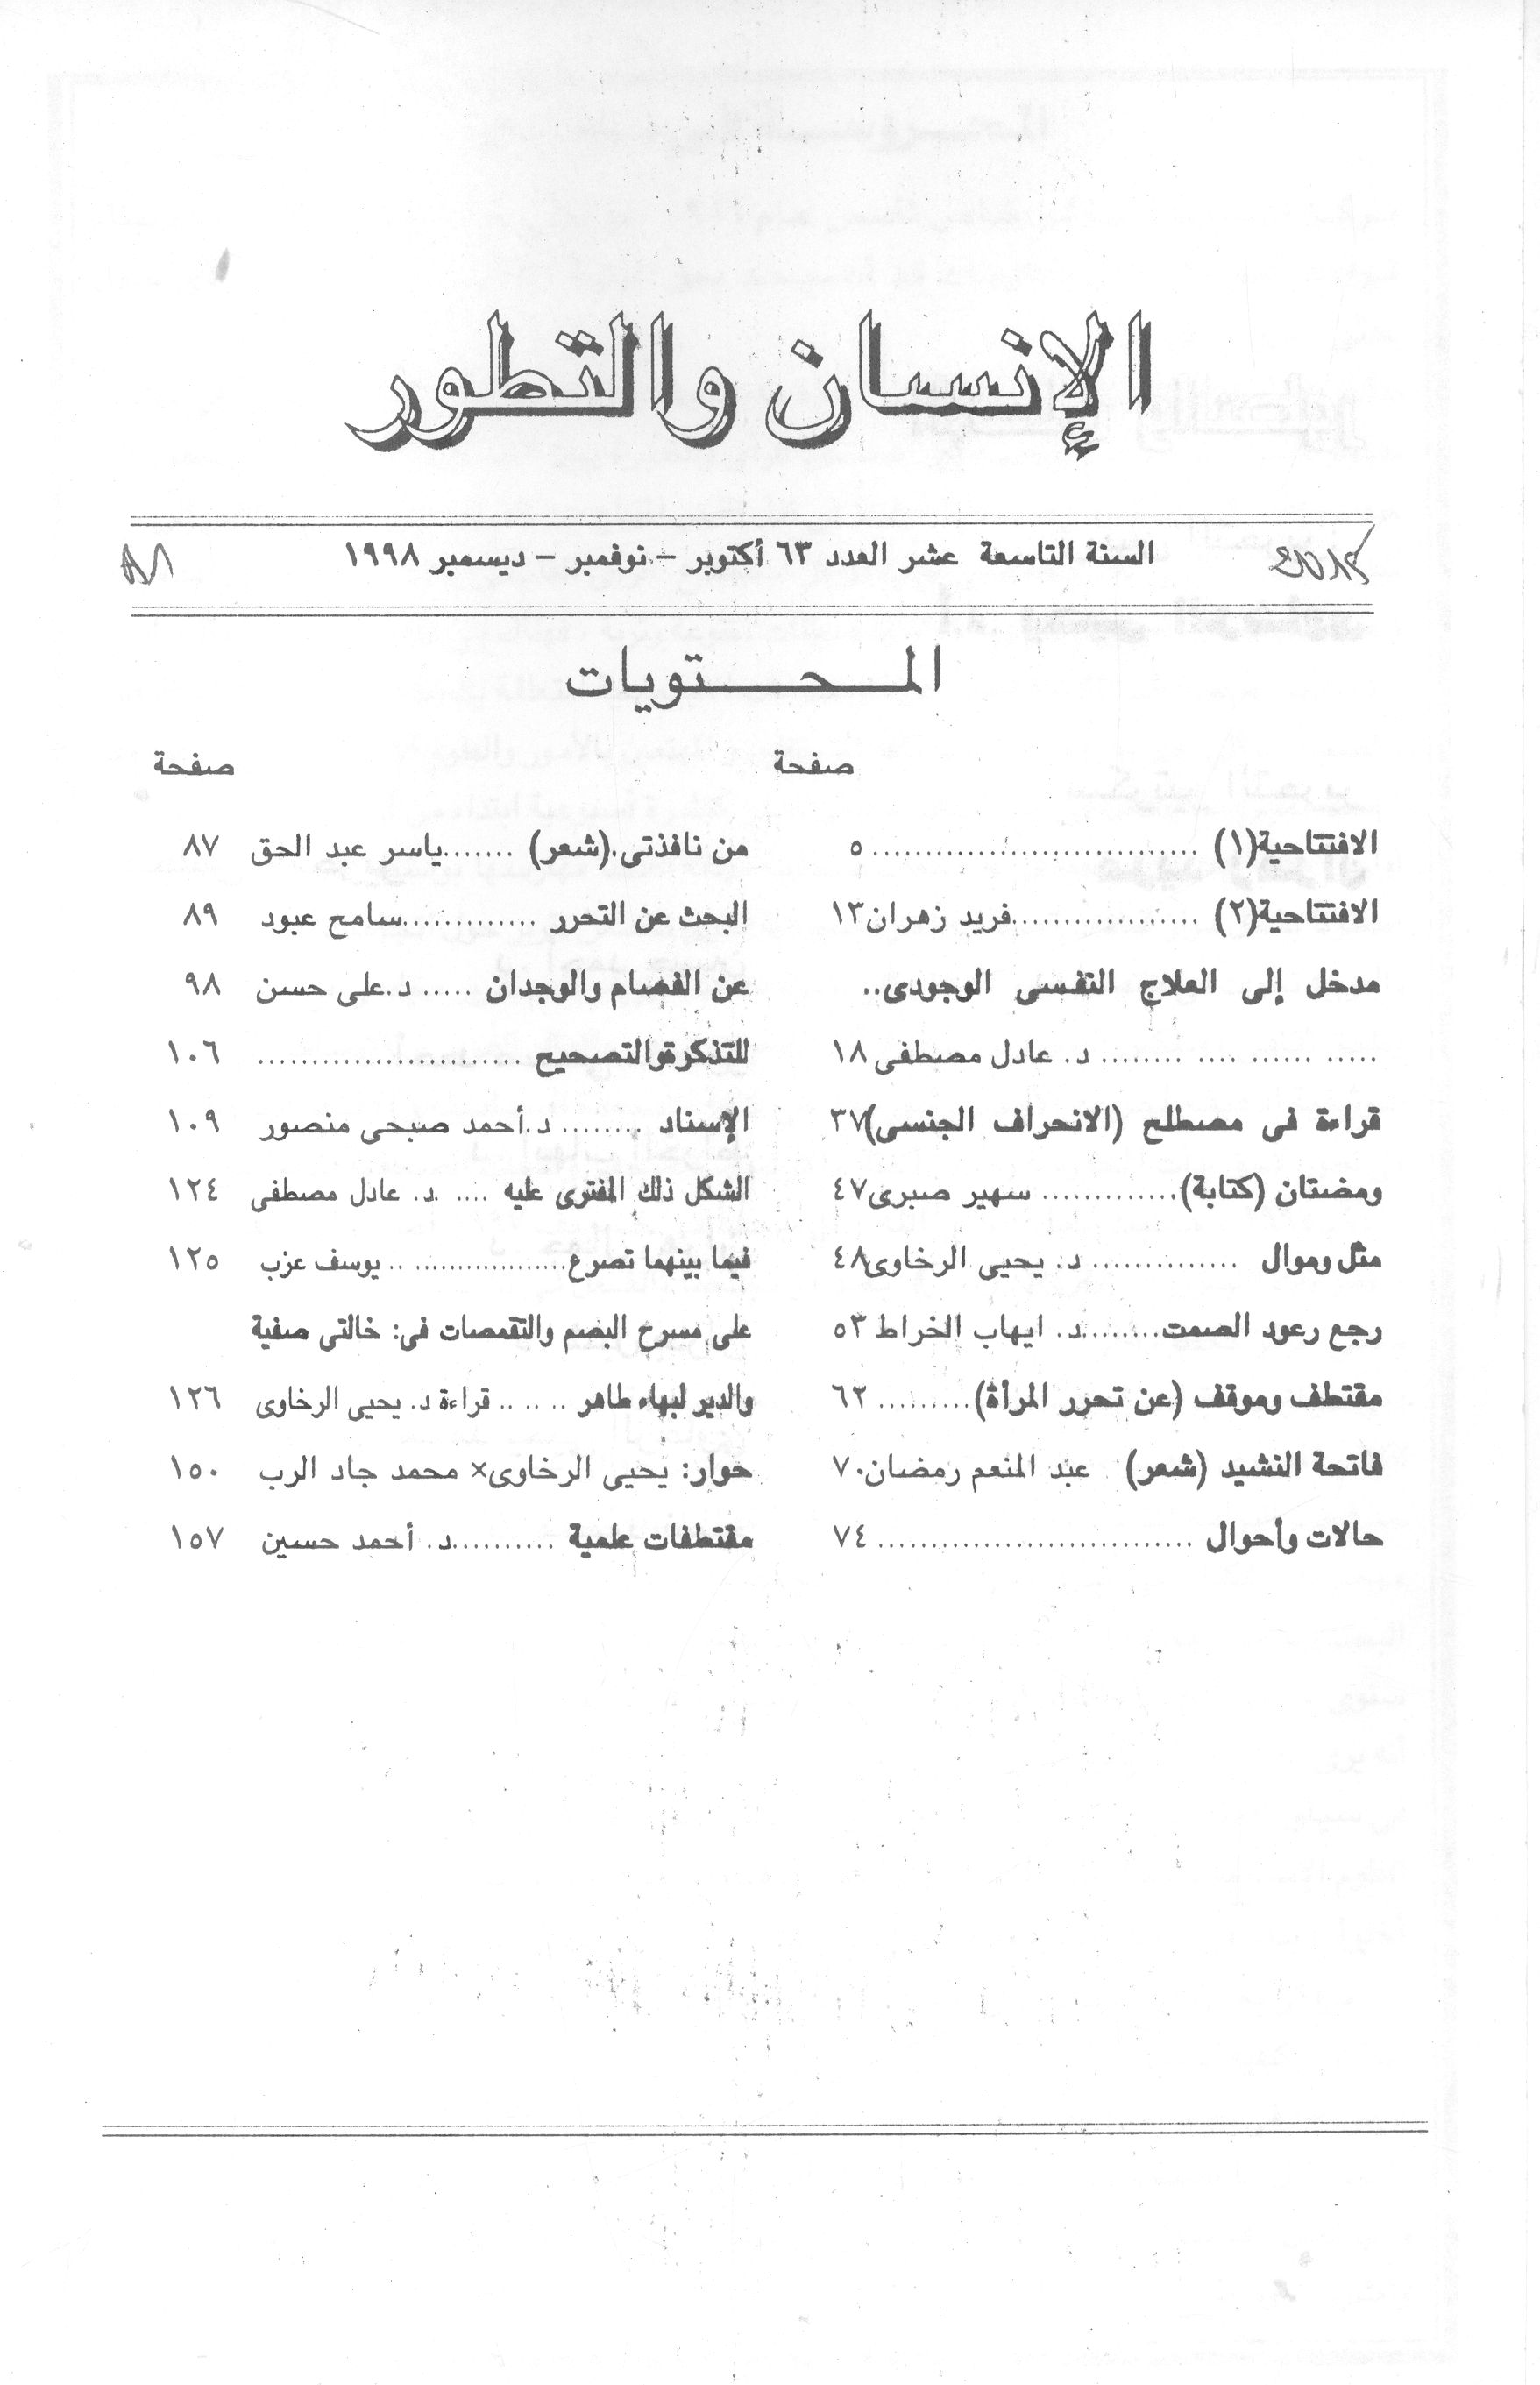 الإنسان والتطور
السنة التاسعة عشر العدد ٦٣ أكتوبر – نوفمبر – ديسمبر ١٩٩٨
المحتويات
صفحة
الافتتاحية(١) ............................... ٥
الافتتاحية(٢) ..................فريد زهران١٣
مدخل إلى العلاج النفسى الوجودى..
..... ...... .... ........ د. عادل مصطفى ١٨
قراءة فى مصطلح (الانحراف الجنسى)٣٧
ومضتان (كتابة)............. سهير صبرى٤٧
مثل وموال .............. د. يحيى الرخاوى٤٨
رجع رعود الصمت........د. ايهاب الخراط ٥٣
مقتطف وموقف (عن تحرر المرأة)......... ٦٢
فاتحة النشيد (شعر) عبد المنعم رمضان٧٠
حالات وأحوال .............................. ٧٤
صفحة
من نافذتى.(شعر) .......ياسر عبد الحق ٨٧
البحث عن التحرر .............سامح عبود ٨٩
عن الفصام والوجدان ..... د.على حسن ٩٨
للتذكرةوالتصحيح ......................... ١٠٦
الإسناد ........ د.أحمد صبحى منصور ١٠٩
الشكل ذلك المفترى عليه .... .د. عادل مصطفى ١٢٤
فيما بينهما تصرع................. .. يوسف عزب ١٢٥
على مسرح البصم والتقمصات فى: خالتى صفية
والدير لبهاء طاهر .. .. .. قراءة د. يحيى الرخاوى ١٢٦
حوار: يحيى الرخاوى× محمد جاد الرب ١٥٠
مقتطفات علمية ..........د. أحمد حسين ١٥٧